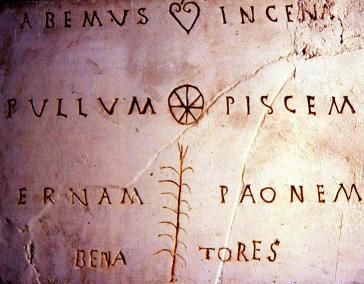 ABEMUS INCENA
PULLUM PISCEM
ERNAM PAONEM
BENA TORES